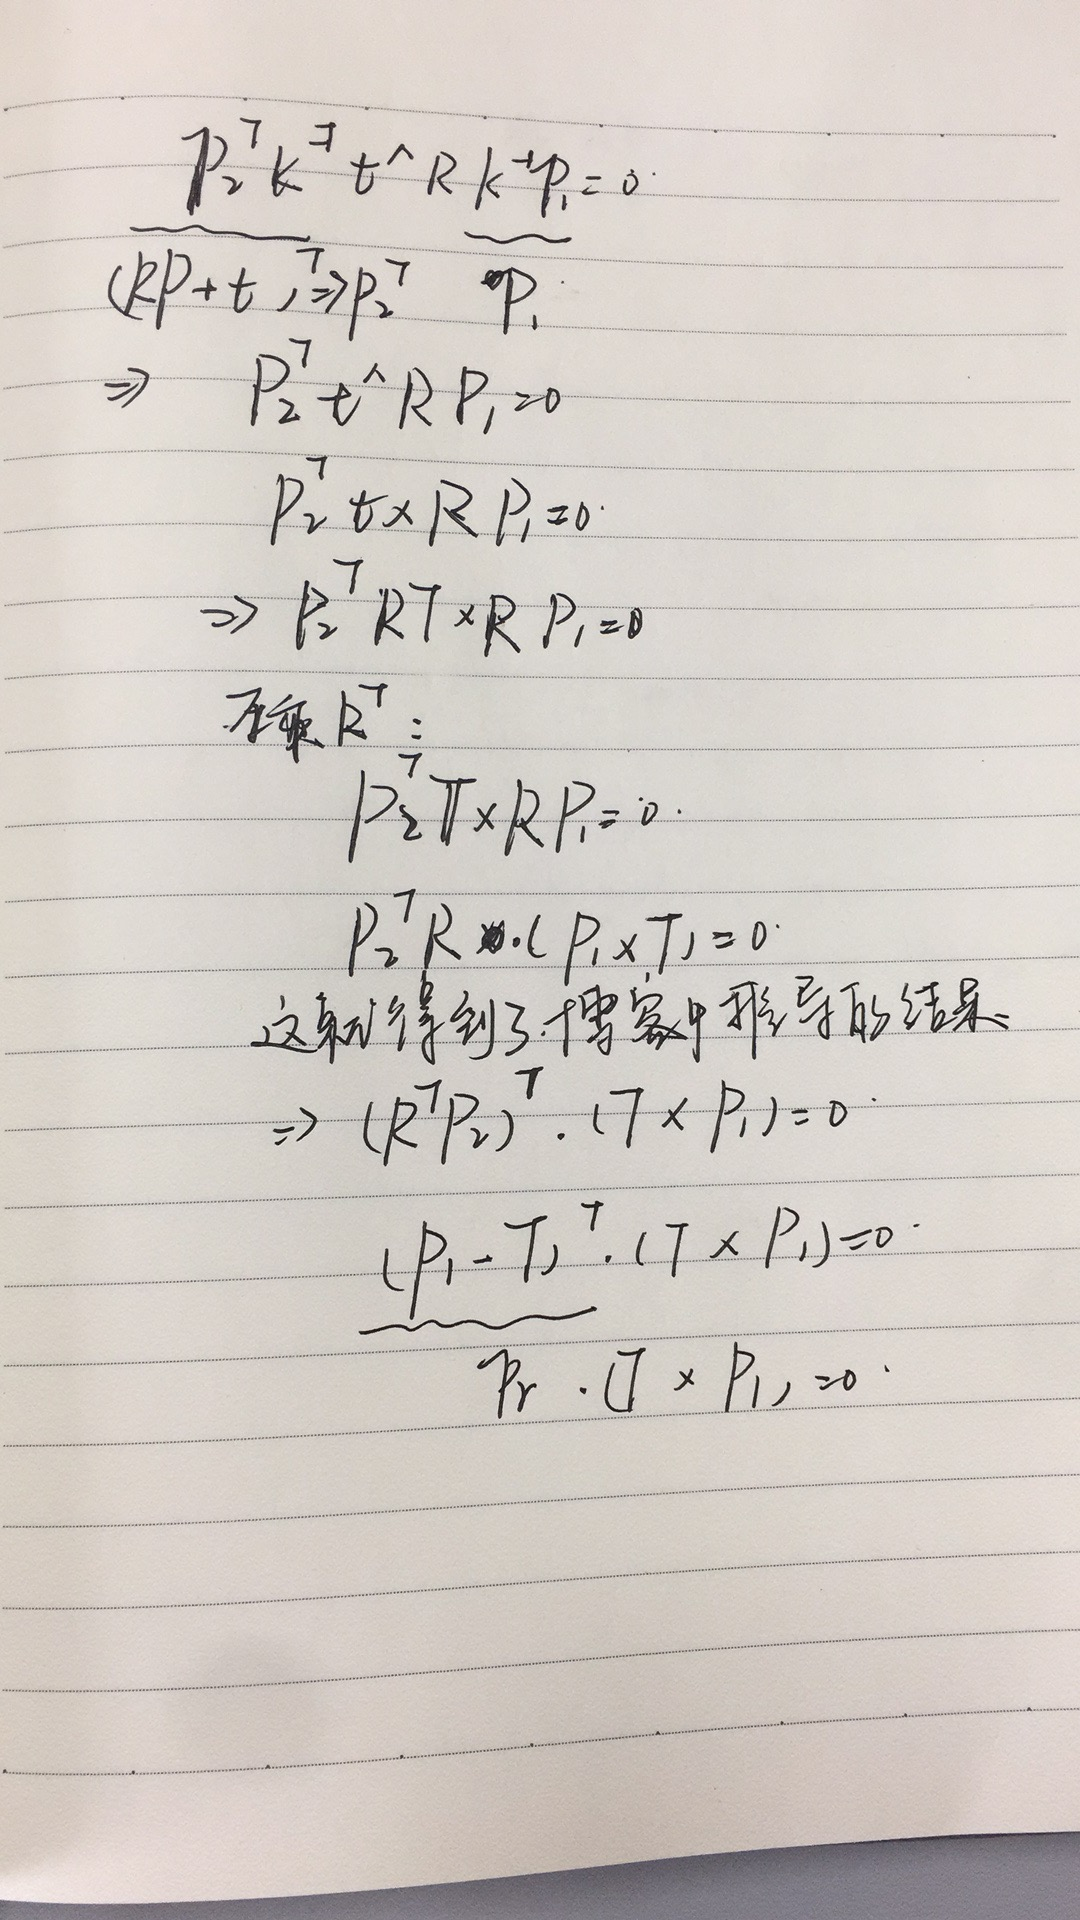 P₂ᵀ K⁻ᵀ t^ R K⁻¹ P₁ = 0.
(RP+t)ᵀ ⇒ P₂ᵀ P₁
⇒ P₂ᵀ t^ R P₁ = 0
P₂ᵀ t × R P₁ = 0.
⇒ P₂ᵀ RT × R P₁ = 0
左乘 Rᵀ :
P₂ᵀ T × R P₁ = 0.
P₂ᵀ R · ( P₁ × T ) = 0.
这就得到了博客中推导的结果.
⇒ (RᵀP₂)ᵀ · (T × P₁) = 0.
(P₁ - T)ᵀ · (T × P₁) = 0.
Pr · (T × P₁) = 0.